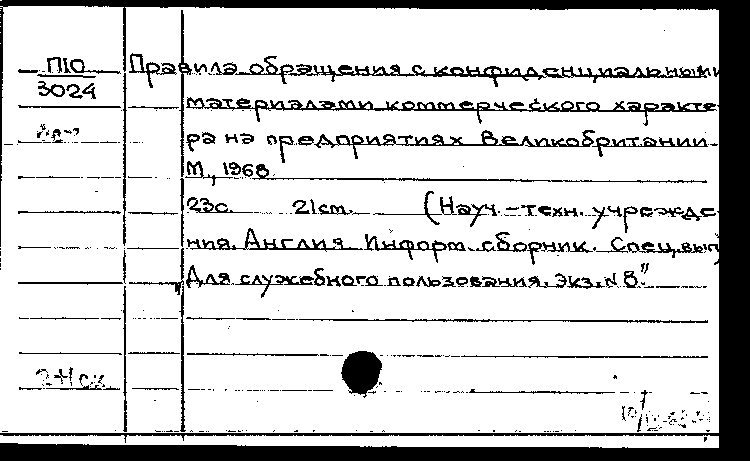 П10
3024
Правила обращения с конфиденциальными
материалами коммерческого характе-
ра на предприятиях Великобритании.
М., 1968
23с. 21см. (Науч.-техн. учрежде-
ния. Англия. Информ. сборник. Спец.вып)
"Для служебного пользования. Экз.№8."